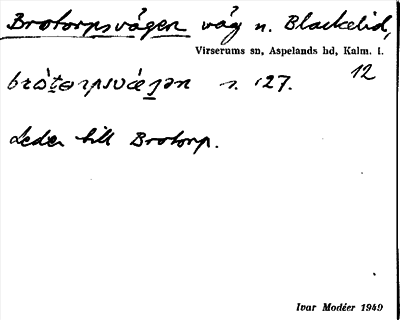 Brotorpsvägen väg n. Blackelid,
Virserums sn, Aspelands hd, Kalm. l.
s. 127. 12
Leder till Brotorp.
Ivar Modéer 1949